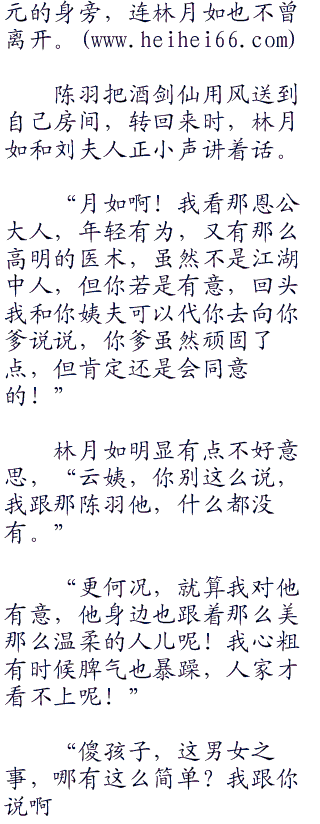 元的身旁，连林月如也不曾
离开。(www.heihei66.com)
陈羽把酒剑仙用风送到
自己房间，转回来时，林月
如和刘夫人正小声讲着话。
“月如啊！我看那恩公
大人，年轻有为，又有那么
高明的医术，虽然不是江湖
中人，但你若是有意，回头
我和你姨夫可以代你去向你
爹说说，你爹虽然顽固了
点，但肯定还是会同意
的！”
林月如明显有点不好意
思，“云姨，你别这么说，
我跟那陈羽他，什么都没
有。”
“更何况，就算我对他
有意，他身边也跟着那么美
那么温柔的人儿呢！我心粗
有时候脾气也暴躁，人家才
看不上呢！”
“傻孩子，这男女之
事，哪有这么简单？我跟你
说啊